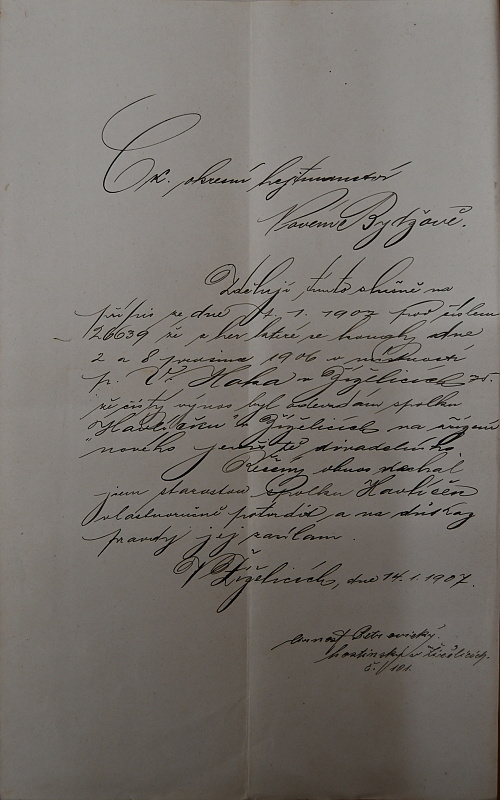 Ck. okresní hejtmanství
Novém Bydžově.
Sděluji tímto slušně na
přípis ze dne 1. 1907 pod číslem
26639 že z her které se konaly dne
2 a 8 prosince 1906 v místnosti
p. V. Haka v Žíželicích
že čistý výnos byl odevzdán spolku
"Havlíčku" v Žíželicích na zřízení
nového jeviště divadelního.
obnos dal
jsem starostou spolku Havlíček
vlastnoručně potvrdit a na důkaz
pravdy jej zasílám.
V Žíželicích, dne 14. 1. 1907.
Petrovický.
hostinský v Žíželicích.
č. 101.